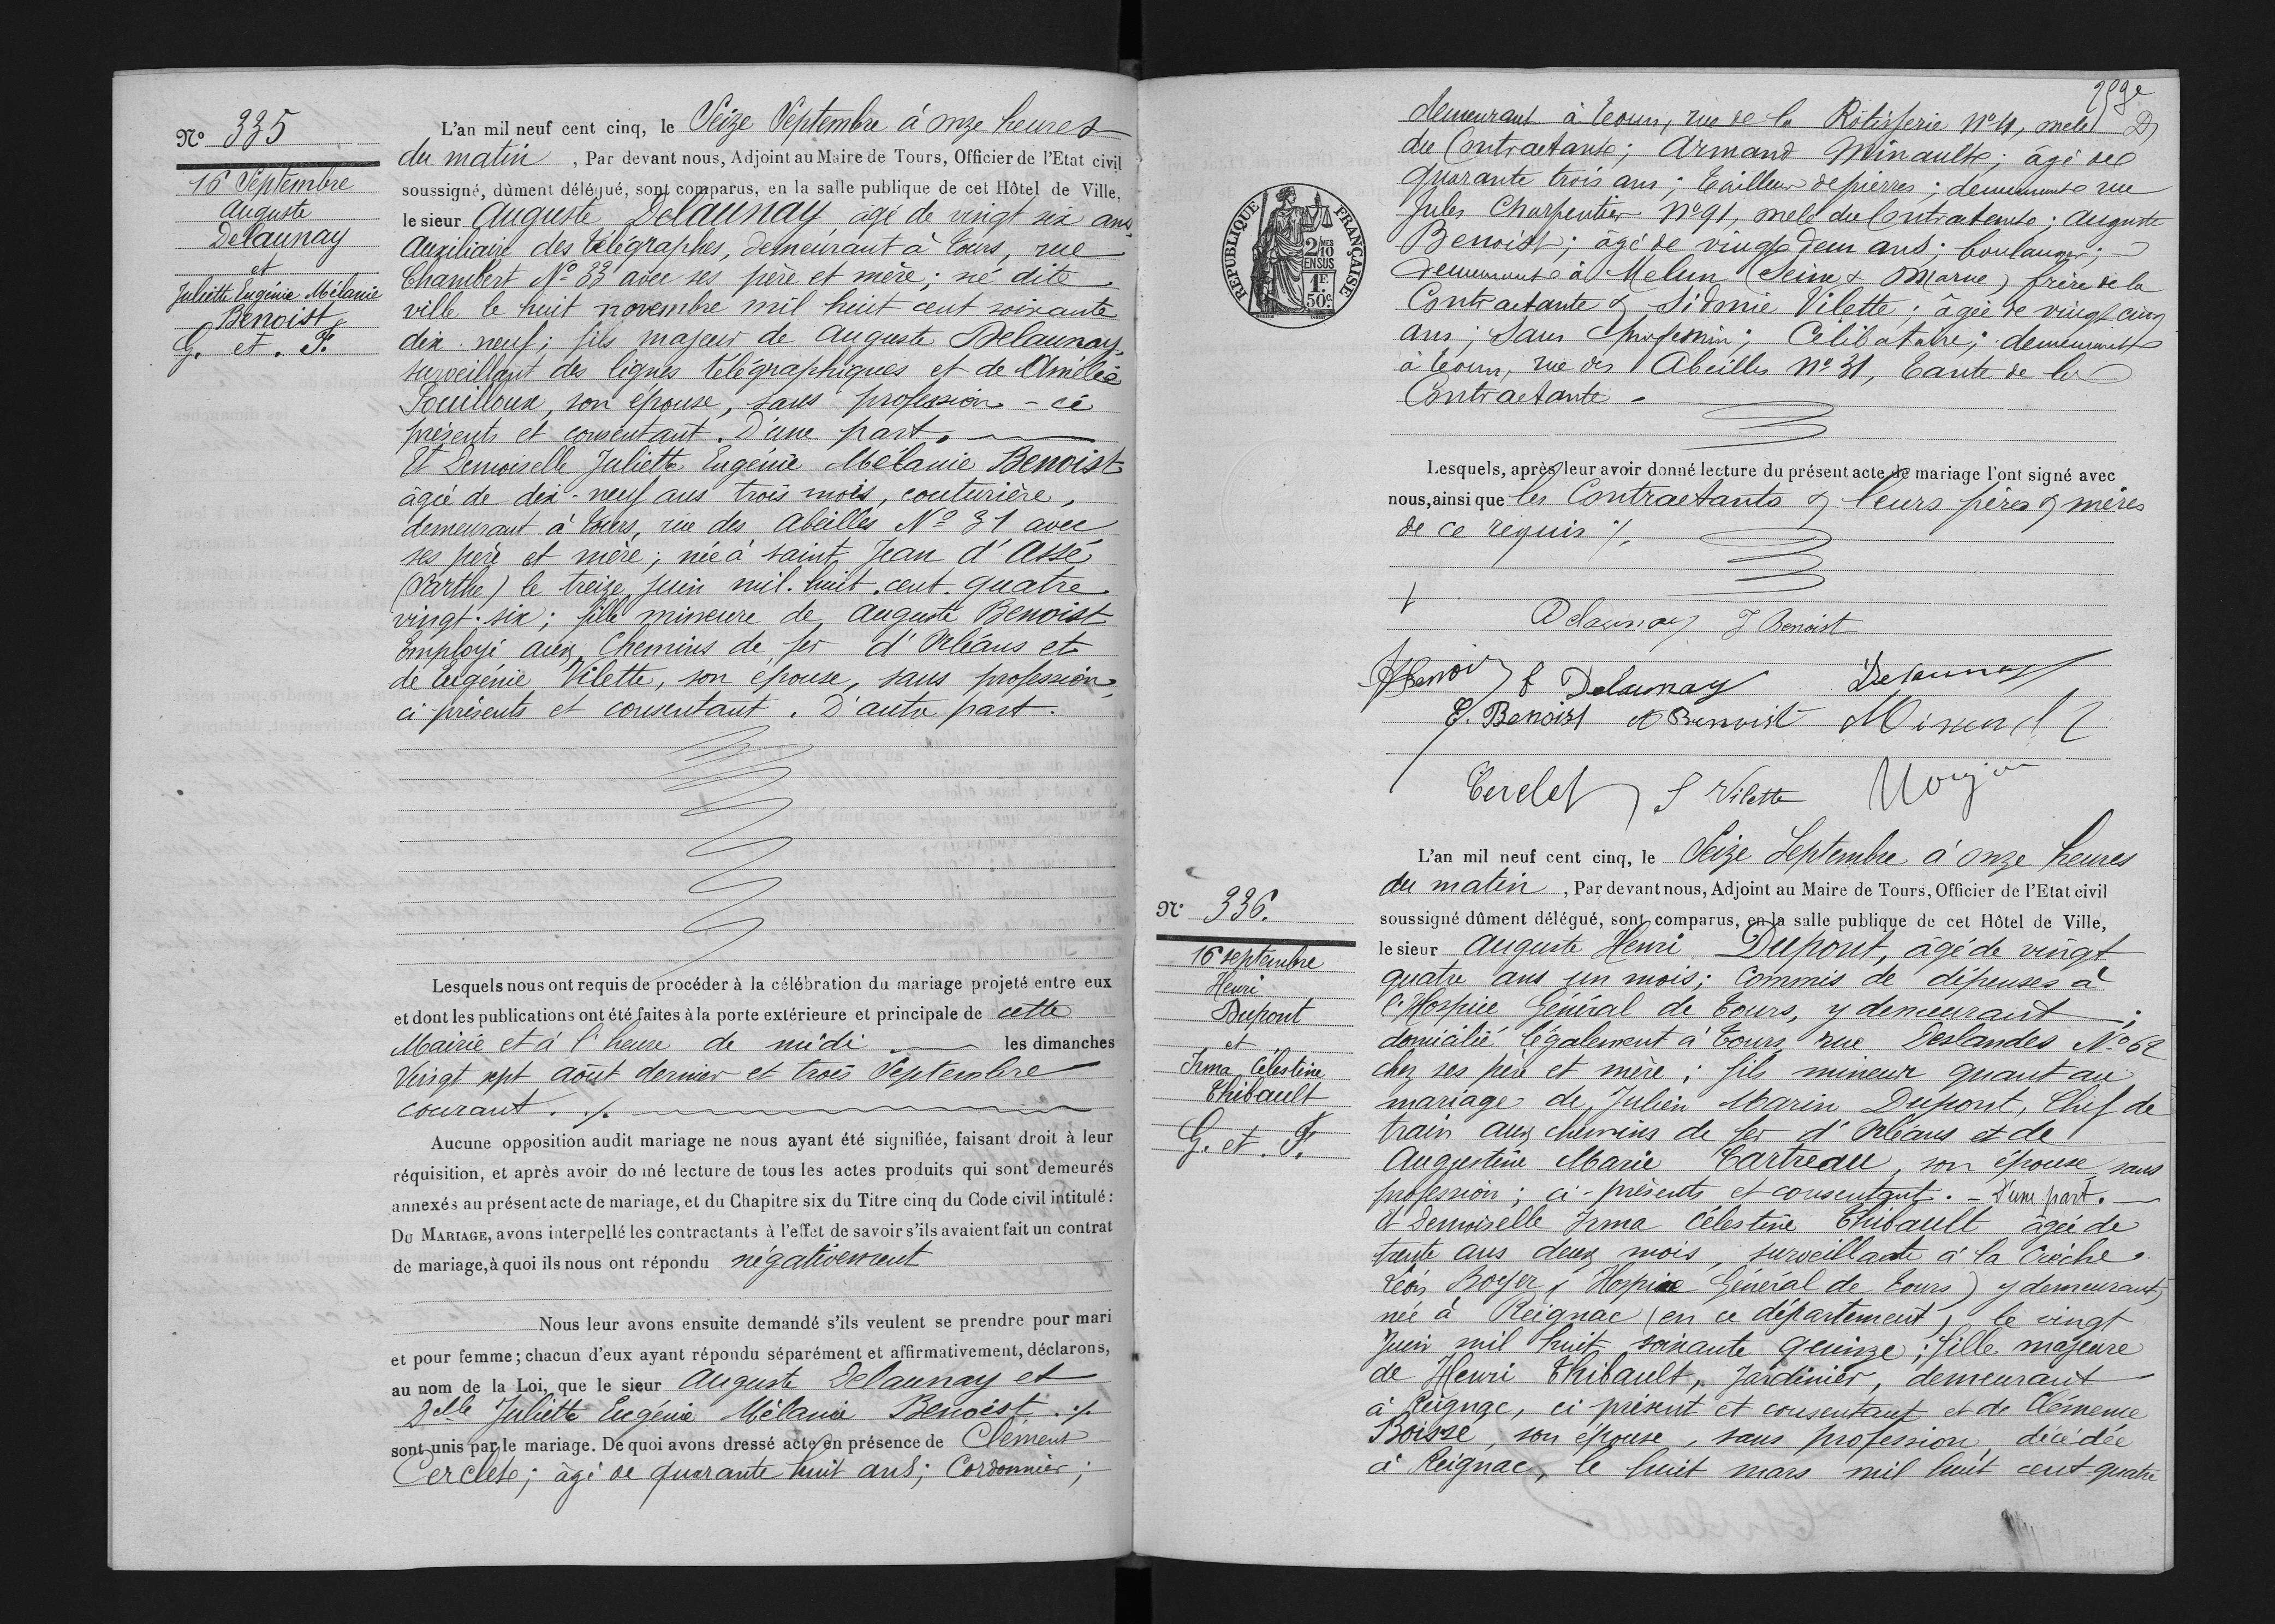 N° 335
16 Septembre
Auguste
Delaunay
et
Juliette Eugénie Mélanie
Benoist
G. et. F.
L'an mil neuf cent cinq, le Seize Septembre à onze heures
du matin, Par devant nous, Adjoint au Maire de Tours, Officier de l'Etat civil
soussigné, dûment délégué, sont comparus, en la salle publique de cet Hôtel de Ville,
le sieur Auguste Delaunay âgé de vingt six ans,
Auxiliaire des télégraphes, demeurant à Tours, rue
Chambert N° 33 avec ses père et mère; né dite
ville le huit novembre mil huit cent soixante
dix-neuf; fils majeur de Auguste Delaunay,
surveillant des lignes télégraphiques et de Amélie
Souilloux, son épouse, sans profession - ci
présents et consentant. D'une part.
Et Demoiselle Juliette Eugénie Mélanie Benoist
âgée de dix-neuf ans trois mois, couturière,
demeurant à Tours, rue des Abeilles N° 31 avec
ses père et mère; née à saint Jean d'Assé
(Sarthe) le treize juin mil. huit. cent. quatre
vingt. six; fille mineure de Auguste Benoist
Employé aux Chemins de fer d'Orléans et
de Eugénie Vilette, son épouse, sans profession,
ci-présents et consentant. D'autre part.
Lesquels nous ont requis de procéder à la célébration du mariage projeté entre eux
et dont les publications ont été faites à la porte extérieure et principale de cette
Mairie et à l'heure de midi les dimanches
Vingt sept août dernier et trois Septembre
courant. ./.
Aucune opposition audit mariage ne nous ayant été signifiée, faisant droit à leur
réquisition, et après avoir donné lecture de tous les actes produits qui sont demeurés
annexés au présent acte de mariage, et du Chapitre six du Titre cinq du Code civil intitulé:
DU MARIAGE, avons interpellé les contractants à l'effet de savoir s'ils avaient fait un contrat
de mariage, à quoi ils nous ont répondu négativement
Nous leur avons ensuite demandé s'ils veulent se prendre pour mari
et pour femme; chacun d'eux ayant répondu séparément et affirmativement, déclarons,
au nom de la Loi, que le sieur Auguste Delaunay et
Delle Juliette Eugénie Mélanie Benoist ./.
sont unis par le mariage. De quoi avons dressé acte en présence de Clément
Cerclet; âgé de quarante huit ans; Cordonnier;
demeurant à Tours, rue de la Rotisserie N° 4,
du Contractant; Armand Minault; âgé de
quarante trois ans; tailleur de pierres; demeurant rue
Jules Charpentier N° 91, du Contractant; Auguste
Benoist; âgé de vingt deux ans; boulanger;
demeurant à Melun (Seine & Marne) frère de la
Contractante & Sidonie Vilette; âgée de vingt cinq
ans; Sans profession; Célibataire; demeurant
à Tours, rue des Abeilles N° 31, Tante de la
Contractante.
REPUBLIQUE FRANÇAISE
2/10 MES
EN SUS
1F.
50c.
Lesquels, après leur avoir donné lecture du présent acte de mariage l'ont signé avec
nous, ainsi que les Contractants & leurs pères & mères
de ce requis ./.
Delaunay J Benoist
A Benoist Delaunay Delaunay
E. Benoist A Benoist Minault
Cerclet S Vilette
N° 336.
16 septembre
Henri
Dupont
et
Irma Célestine
Thibault
G. et. F.
L'an mil neuf cent cinq, le Seize Septembre à onze heures
du matin, Par devant nous, Adjoint au Maire de Tours, Officier de l'Etat civil
soussigné dûment délégué, sont comparus, en la salle publique de cet Hôtel de Ville,
le sieur Auguste Henri Dupont, âgé de vingt
quatre ans un mois; Commis de dépenses à
l'Hospice Général de Tours, y demeurant;
domicilié légalement à Tours rue Deslandes N° 62
chez ses père et mère; fils mineur quant au
mariage de Julien Marin Dupont, Chef de
train aux chemins de fer d'Orléans et de
Augustine Marie Tartreau, son épouse, sans
profession; ci-présents et consentant. - D'une part.
Et Demoiselle Irma Célestine Thibault âgée de
trente ans deux mois, surveillante à la Crèche
Léon Boyer (Hospice Général de Tours) y demeurant,
née à Reignac (en ce département), le vingt
Juin mil huit soixante quinze; fille majeure
de Henri Thibault, Jardinier, demeurant
à Reignac, ci présent et consentant et de Clémence
Boisse, son épouse, sans profession, décédée
à Reignac, le huit mars mil huit cent quatre